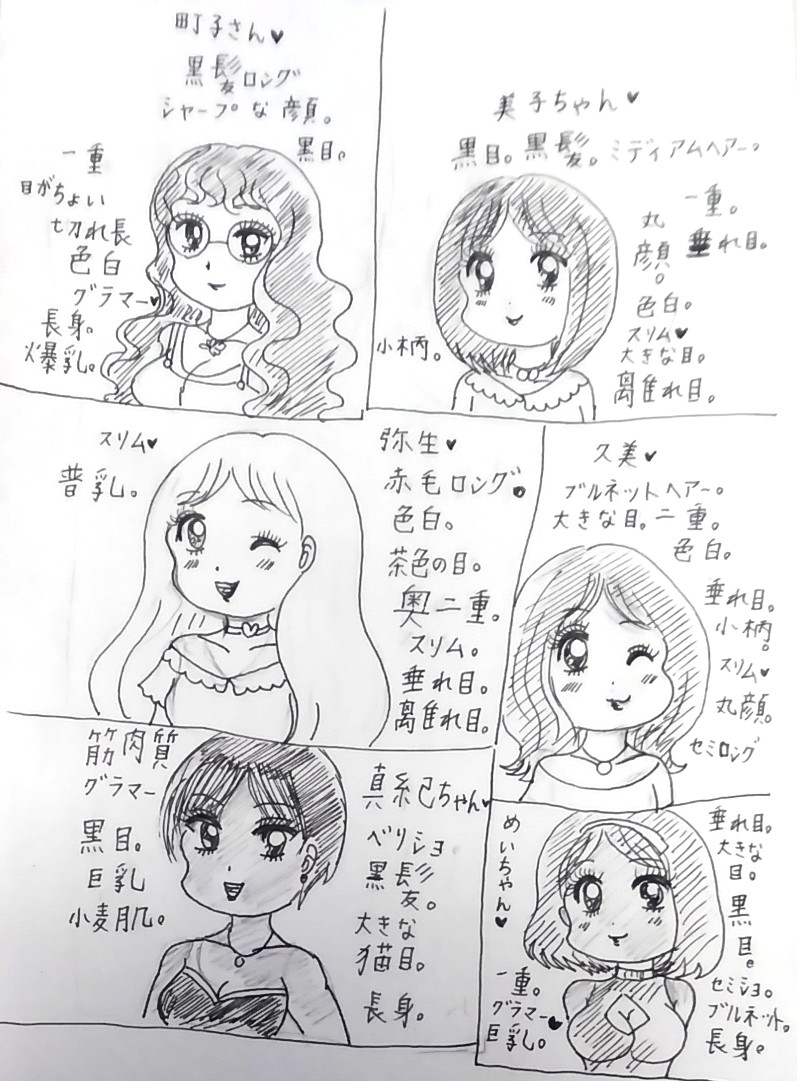 町子さん♥
黒髪ロング
シャープな顔。
黒目。
一重
目がちょい
切れ長
色白
グラマー♥
長身。
爆乳。
美子ちゃん♥
黒目。黒髪。ミディアムヘアー。
一重。
垂れ目。
丸顔。
色白。
スリム♥
大きな目。
離れ目。
小柄。
スリム♥
普乳。
弥生♥
赤毛ロング。
色白。
茶色の目。
奥二重。
スリム。
垂れ目。
離れ目。
久美♥
ブルネットヘアー。
大きな目。二重。
色白。
垂れ目。
小柄。
スリム♥
丸顔。
セミロング
筋肉質
グラマー
黒目。
巨乳
小麦肌。
真紀ちゃん♥
ベリショ
黒髪。
大きな
猫目。
長身。
めいちゃん♥
垂れ目。
大きな
目。
黒目。
セミショ。
ブルネット。
長身。
一重。
グラマー♥
巨乳。